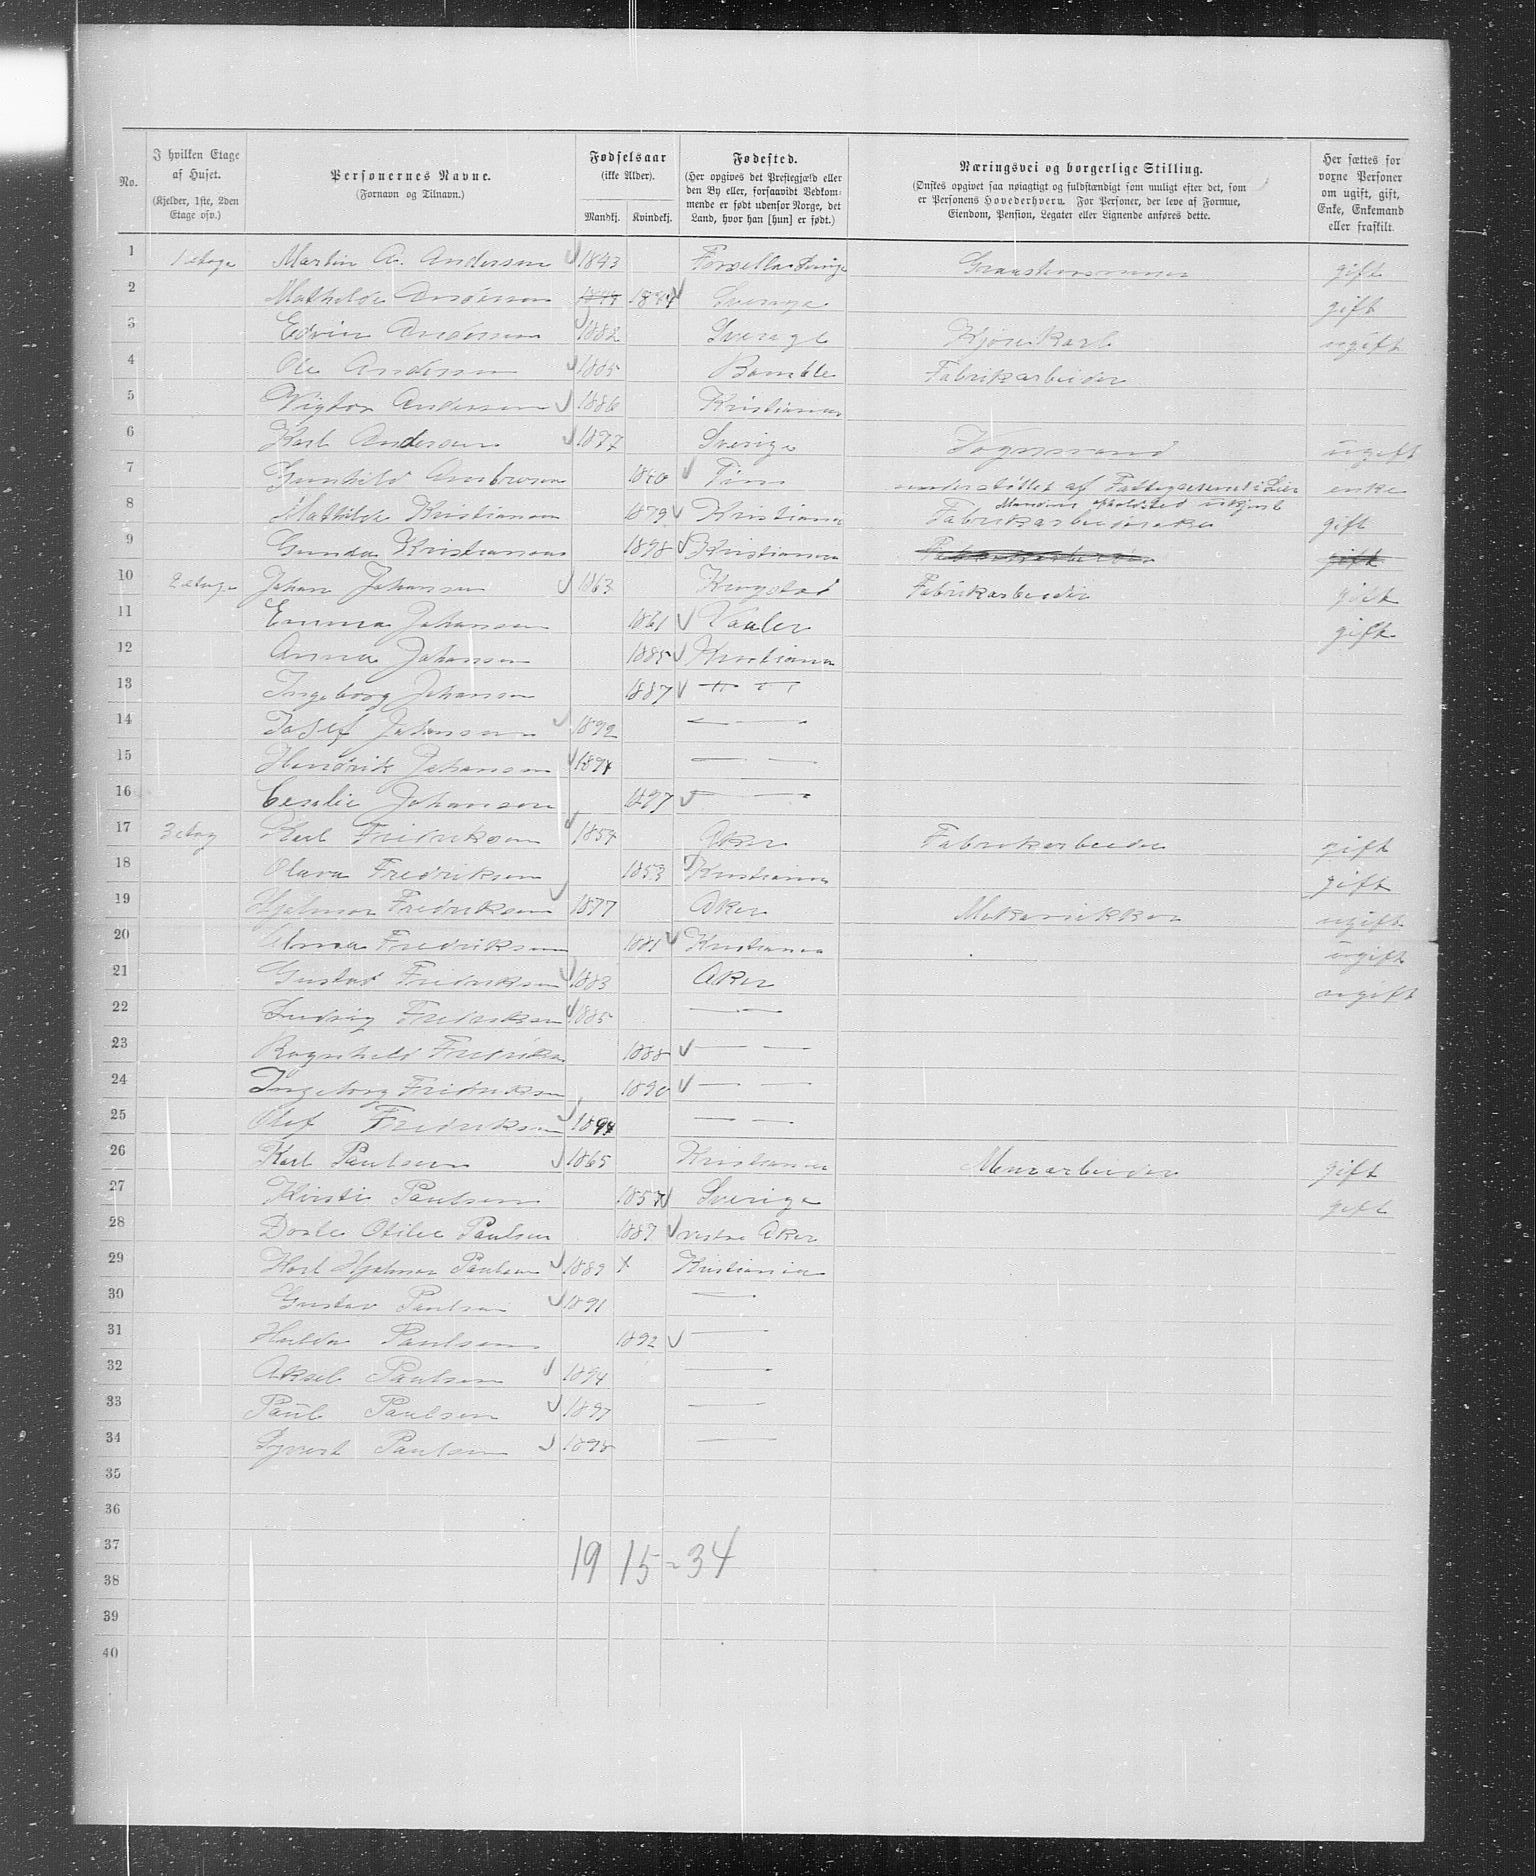 No.
I hvilken Etage
af Huset.
(Kjelder, 1ste, 2den
Etage osv.)
Personernes Navne.
(Fornavn og Tilnavn.)
Fødselsaar
(ikke Alder).
Mandkj. Kvindekj.
Fødested.
(Her opgives det Prestegjæld eller
den By eller, forsaavidt Vedkom-
mende er født udenfor Norge, det
Land, hvor han [hun] er født.)
Næringsvei og borgerlige Stilling.
(Ønskes opgivet saa nøiagtigt og fuldstændigt som muligt efter det, som
er Personens Hovederhverv. For Personer, der leve af Formue,
Eiendom, Pension, Legater eller Lignende anføres dette.
Her sættes for
voxne Personer
om ugift, gift,
Enke, Enkemand
eller fraskilt.
1 1 etage Martin A. Anderson 1843 Sverige gift
2 Mathilde Anderson 1844 Sverige gift
3 Edvin Anderson 1882 Sverige Kjørekarl ugift
4 Ole Anderson 1885 Bamble Fabrikarbeider
5 Vigtor Anderson 1886 Kristiania
6 Karl Anderson 1877 Sverige Vognmand ugift
7 Gunhild 1840 Tinn understøttet af Fattigvesenet i Lier enke
8 Mathilde Kristianson 1879 Kristiania Mandens opholdsted ukjent
Fabrikarbeiderske gift
9 Gunda Kristianson 1898 Kristiania
10 2 etage Johan Johanson 1863 Krogstad Fabrikarbeider gift
11 Emma Johanson 1861 Vaaler gift
12 Anna Johanson 1885 Kristiania
13 Ingeborg Johanson 1887 — —
14 Josef Johanson 1892 — —
15 Hendrik Johanson 1894 — —
16 Cesilie Johanson 1897 — —
17 3 etag Karl Fredrikson 1854 Aker Fabrikarbeider gift
18 Olava Fredrikson 1853 Kristiania gift
19 Hjalmar Fredrikson 1877 Aker Mekanikker ugift
20 Alma Fredrikson 1881 Kristiania ugift
21 Gustav Fredrikson 1883 Aker ugift
22 Ludvig Fredrikson 1885 — —
23 Ragnhild Fredrikson 1888 — —
24 Ingeborg Fredrikson 1890 — —
25 Olof Fredrikson 1894 — —
26 Karl Paulsen 1865 Kristiania Murarbeider gift
27 Kirsti Paulsen 1857 Sverige gift
28 Dorte Otilie Paulsen 1887 vestre Aker
29 Karl Hjalmar Paulsen 1889 x Kristiania
30 Gustav Paulsen 1891 —
31 Hulda Paulsen 1892 —
32 Aksel Paulsen 1894 —
33 Paul Paulsen 1897 —
34 Paulsen 1898 —
35
36
37 19 15 = 34
38
39
40